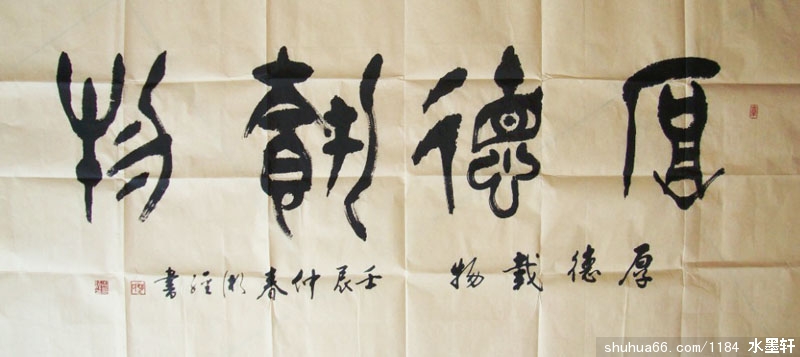 厚德載物
厚德载物
壬辰仲春湘經書
shuhua66.com/1184 水墨轩